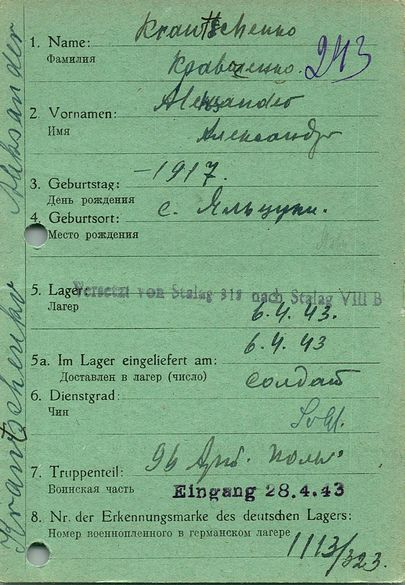 Krawtschenko
1. Name:
Фамилия
Кравченко
243
Alexander
2. Vornamen:
Имя
Александр
3. Geburtstag:
-1917.
День рождения
с. Яльцуки.
4. Geburtsort:
Место рождения
5. Lager:
Versetzt von Stalag 318 nach Stalag VIII B
Лагер
6.4.43.
6.4.43
5a. Im Lager eingeliefert am:
Доставлен в лагер (число)
солдат
6. Dienstgrad:
Чин
Sold.
96 Арт. полк
7. Truppenteil:
Воинская часть
Eingang 28.4.43
8. Nr. der Erkennungsmarke des deutschen Lagers:
Номер военнопленного в германском лагере
1113/323.
Krawtschenko Aleksander